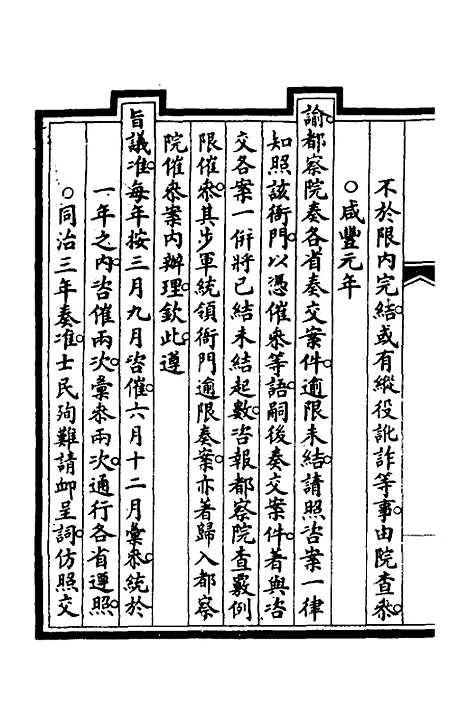 不於限内完結或有縱役訛詐等事由院查叅
○咸豐元年
諭都察院奏各省奏交案件逾限未結請照咨案一律
知照該衙門以憑催叅等語嗣後奏交案件著與咨
交各案一倂將已結未結起數咨報都察院查覈例
限催叅其步軍統領衙門逾限奏案亦著歸入都察
院催叅案内辦理欽此遵
旨議准每年按三月九月咨催六月十二月彙叅統於
一年之内咨催兩次彙叅兩次通行各省遵照
○同治三年奏准士民殉難請卹呈詞仿照交